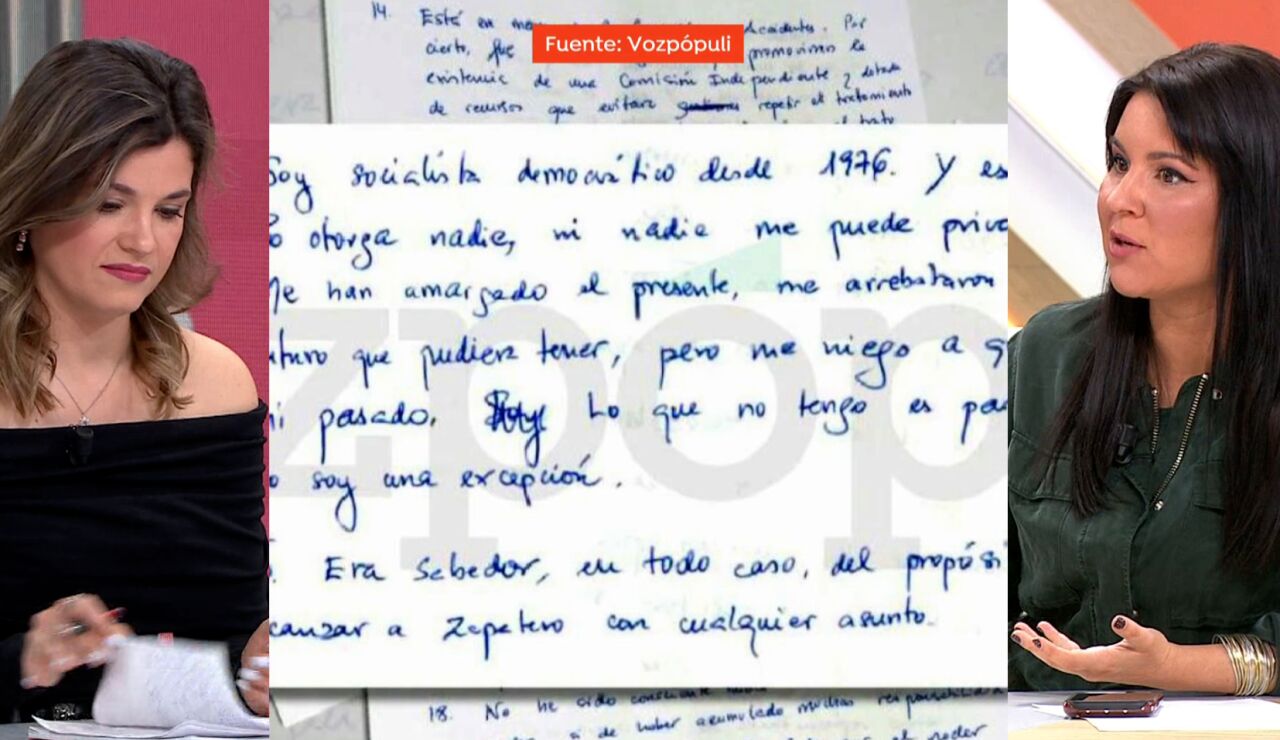 Fuente: Vozpópuli
14. Está en Accidentes. Por
cierto, fue promovimos la
existencia de una Comisión Independiente y dotada
de recursos que evitara repetir el tratamiento
el trato
Soy socialista democrático desde 1976. Y es
otorga nadie, ni nadie me puede priva
Me han amargado el presente, me arrebataron
uturo que pudiera tener, pero me niego a q
i pasado. Lo que no tengo es pa
o soy una excepción.
Era sabedor, en todo caso, del propósi
canzar a Zapatero con cualquier asunto.
zpóp
18. No he sido consciente
si de haber acumulado muchas responsabilida
el poder